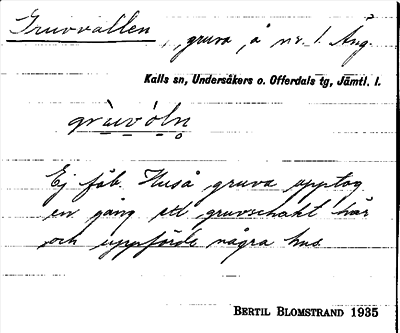 Gruvvallen, gruva, å nr. 1. Äng.
Kalls sn, Undersåkers o. Offerdals tg, Jämtl. l.
grùvóln
Ej fäb. Huså gruva upptog
en gång ett gruvschakt här
och uppförde några hus.
BERTIL BLOMSTRAND 1935